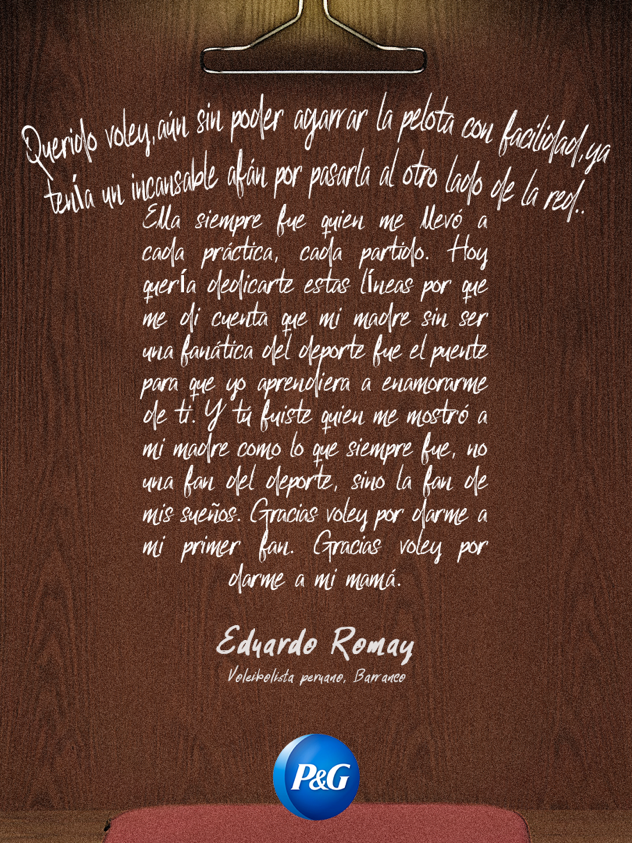 Querido voley,aún sin poder agarrar la pelota con facilidad,ya
tenía un incansable afán por pasarla al otro lado de la red..
Ella siempre fue quien me llevó a
cada práctica, cada partido. Hoy
quería dedicarte estas líneas por que
me di cuenta que mi madre sin ser
una fanática del deporte fue el puente
para que yo aprendiera a enamorarme
de ti. Y tú fuiste quien me mostró a
mi madre como lo que siempre fue, no
una fan del deporte, sino la fan de
mis sueños. Gracias voley por darme a
mi primer fan. Gracias voley por
darme a mi mamá.
Eduardo Romay
Voleibolista peruano, Barranco
P&G